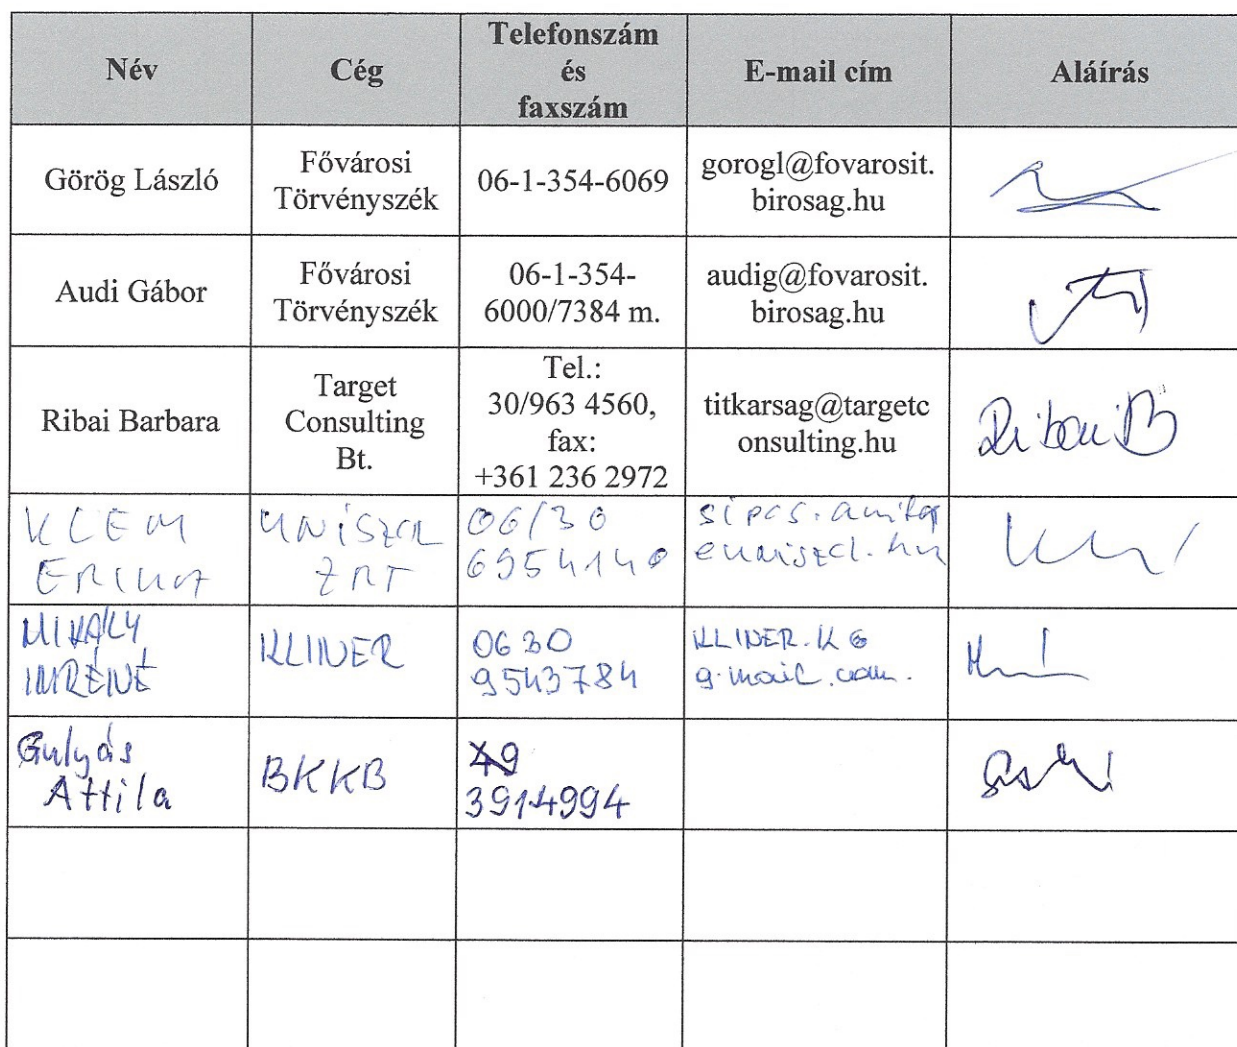 Név
Cég
Telefonszám
és
faxszám
E-mail cím
Aláírás
Görög László
Fővárosi
Törvényszék
06-1-354-6069
gorogl@fovarosit.
birosag.hu
Audi Gábor
Fővárosi
Törvényszék
06-1-354-
6000/7384 m.
audig@fovarosit.
birosag.hu
Ribai Barbara
Target
Consulting
Bt.
Tel.:
30/963 4560,
fax:
+361 236 2972
titkarsag@targetc
onsulting.hu
Ribai B
KLEM
ZRT
06/30
6954140
MIHÁLY
IMRÉNÉ
KLINER
0630
9543784
KLINER.KG
g.mail.com.
Gulyás
Attila
BKKB
3914994